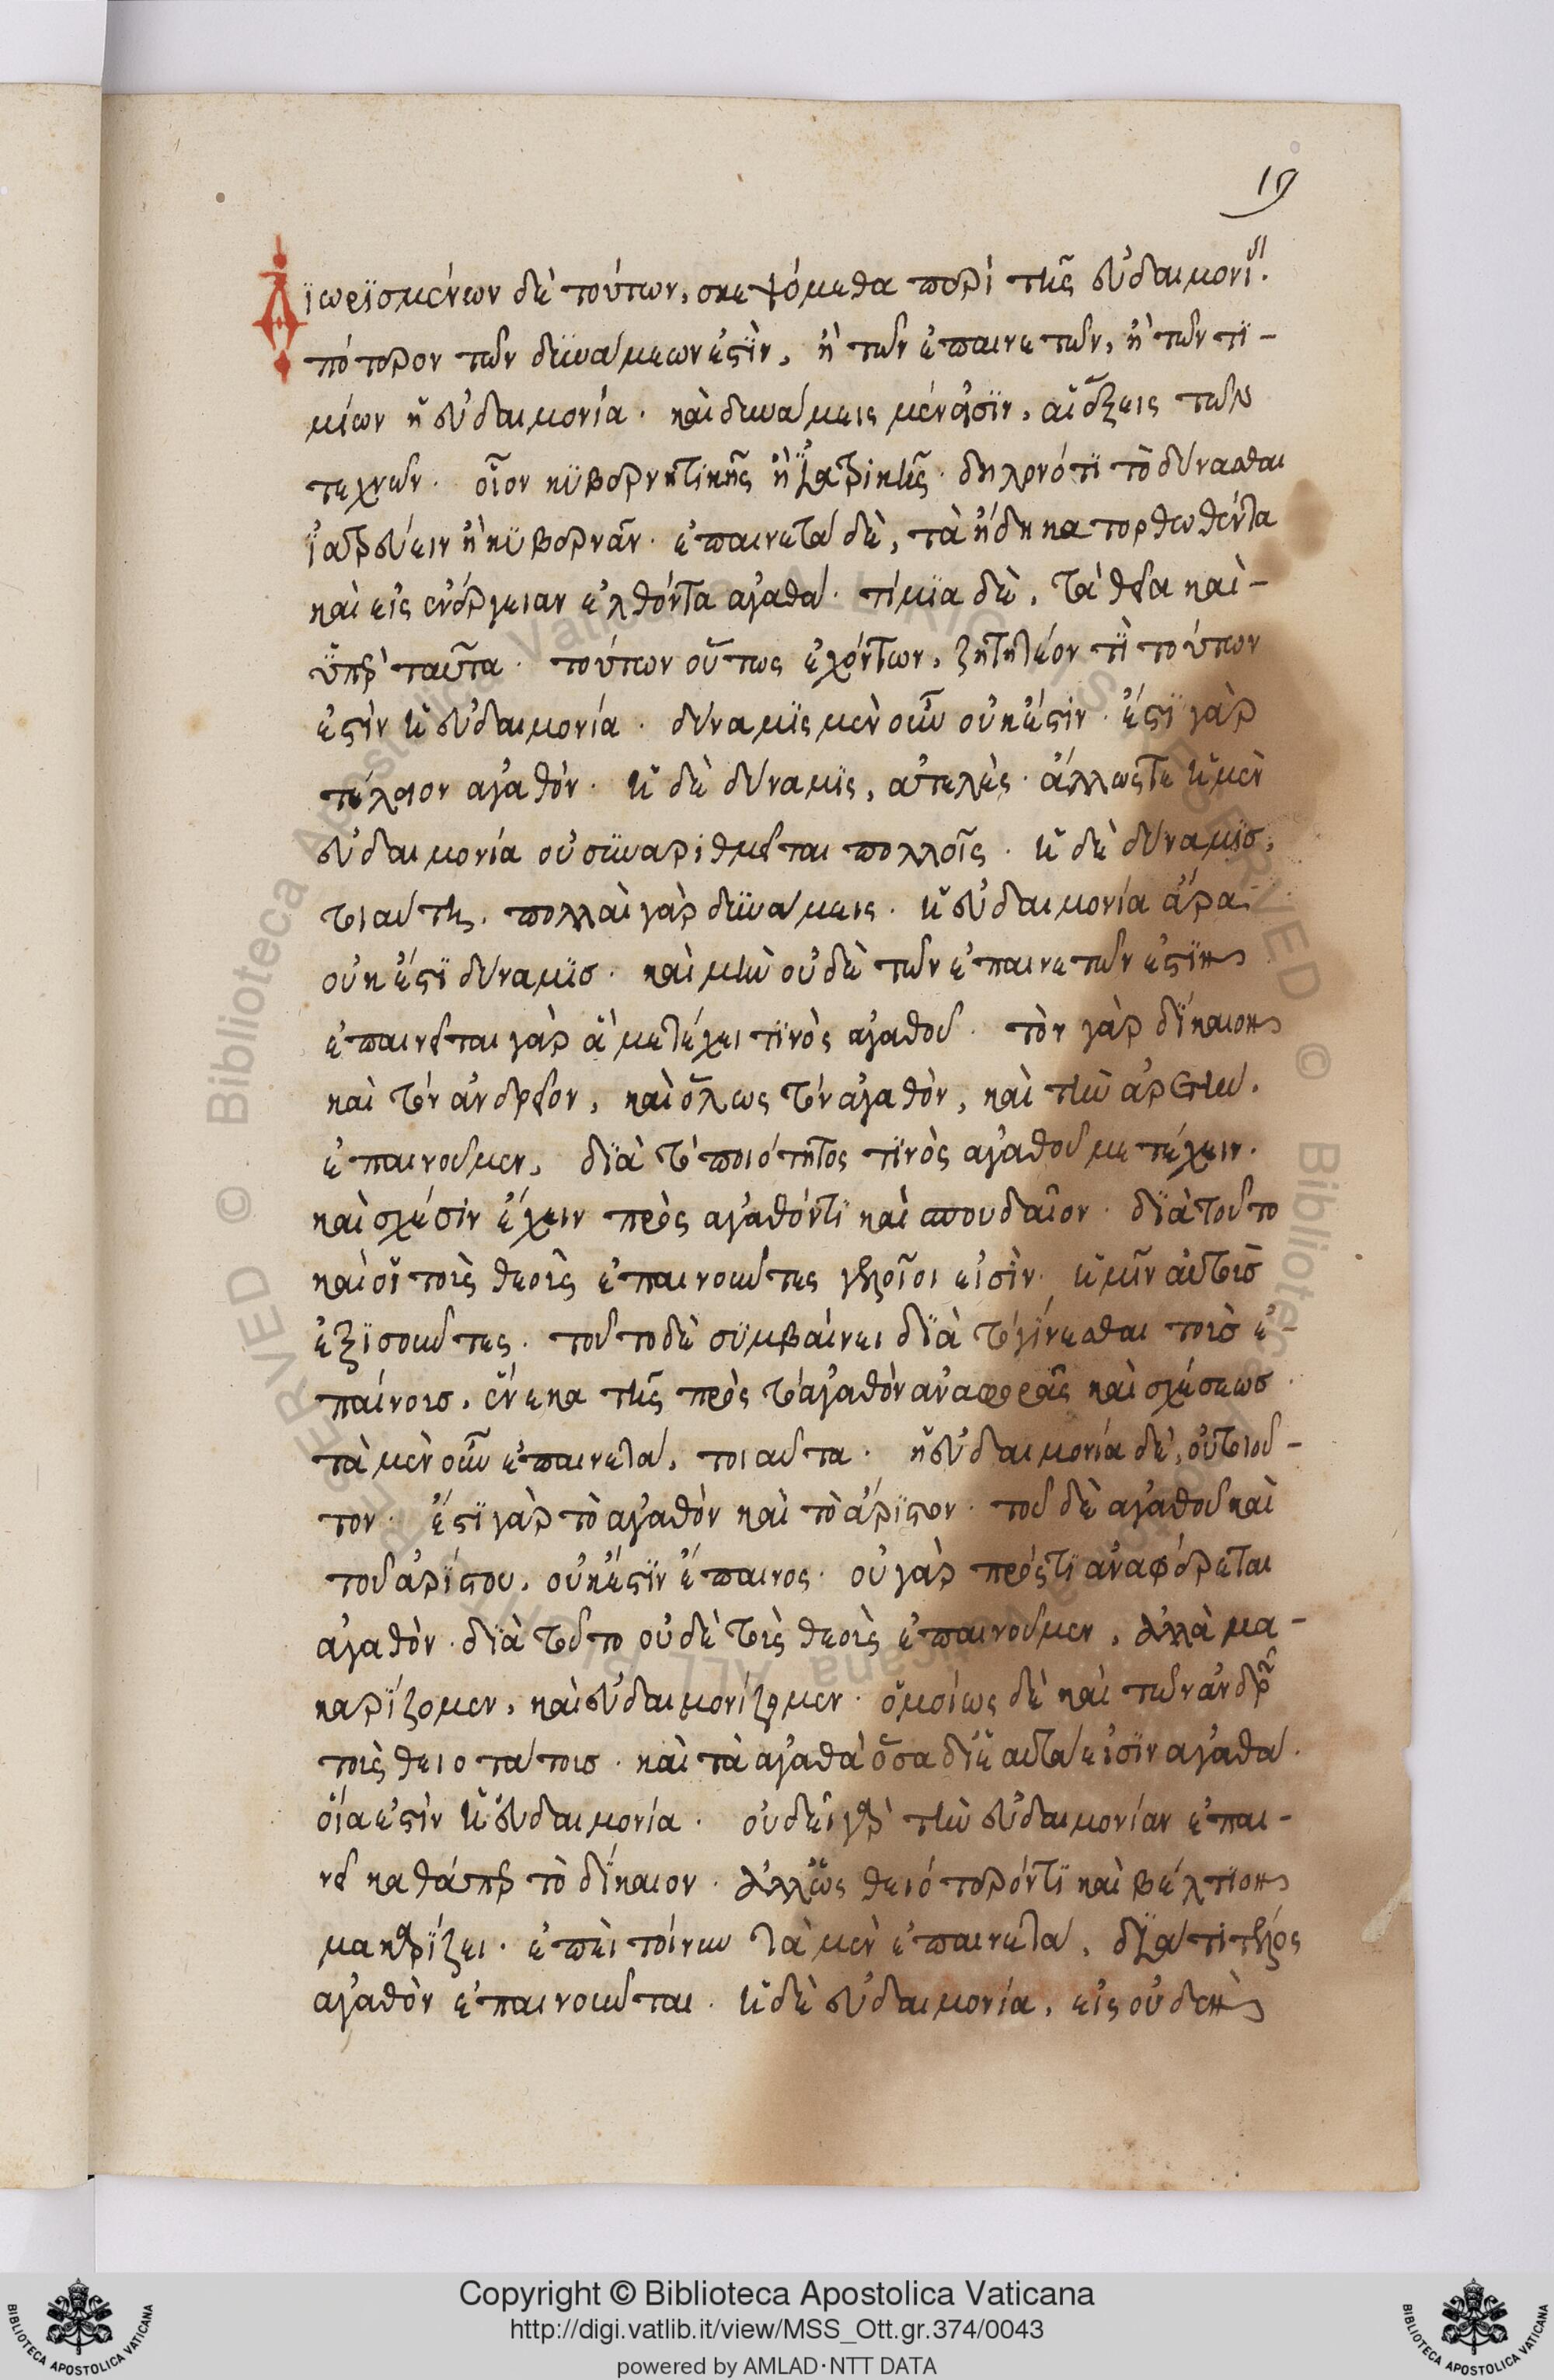 19
Διωρισμένων δὲ τούτων, σκεψόμεθα περὶ τῆς εὐδαιμονίας.
πότερον τῶν δυνάμεων ἐστὶν, ἢ τῶν ἐπαινετῶν, ἢ τῶν τι-
μίων ἡ εὐδαιμονία. καὶ δυνάμεις μέν εἰσιν, αἱ ἕξεις τῶν
τεχνῶν. οἷον κυβερνητικῆς ἢ ἰατρικῆς. δηλονότι τὸ δύνασθαι
ἰατρεύειν ἢ κυβερνᾶν. ἐπαινετὰ δὲ, τὰ ἤδη κατορθωθέντα
καὶ εἰς ἐνέργειαν ἐλθόντα ἀγαθά. τίμια δὲ, τὰ θεῖα καὶ-
ὑπὲρ ταῦτα. τούτων οὕτως ἐχόντων, ζητητέον τί τούτων
ἐστὶν ἡ εὐδαιμονία. δύναμις μὲν οὖν οὐκ ἔστιν. ἔστι γὰρ
τέλειον ἀγαθόν. ἡ δὲ δύναμις, ἀτελὲς. ἄλλως τε ἡ μὲν
εὐδαιμονία οὐ συναριθμεῖται πολλοῖς. ἡ δὲ δύναμις,
τοιαύτη. πολλαὶ γὰρ δυνάμεις. ἡ εὐδαιμονία ἄρα
οὐκ ἔστι δύναμις. καὶ μὴν οὐδὲ τῶν ἐπαινετῶν ἐστὶν
ἐπαινεῖται γὰρ ἃ μετέχει τινὸς ἀγαθοῦ. τὸν γὰρ δίκαιον
καὶ τὸν ἀνδρεῖον, καὶ ὅλως τὸν ἀγαθὸν, καὶ τὴν ἀρετὴν.
ἐπαινοῦμεν, διὰ τὸ ποιότητος τινὸς ἀγαθοῦ μετέχειν.
καὶ σχέσιν ἔχειν πρὸς ἀγαθόν τι καὶ σπουδαῖον. διὰ τοῦτο
καὶ οἱ τοὺς θεοὺς ἐπαινοῦντες γελοῖοι εἰσὶν. ἡμῖν αὐτοὺς
ἐξισοῦντες. τοῦτο δὲ συμβαίνει διὰ τὸ γίνεσθαι τοὺς ἐ-
παίνους, ἕνεκα τῆς πρὸς τὸ ἀγαθὸν ἀναφορᾶς καὶ σχέσεως.
τὰ μὲν οὖν ἐπαινετὰ, τοιαῦτα. ἡ εὐδαιμονία δὲ, οὐ τοιοῦ-
τον. ἔστι γὰρ τὸ ἀγαθὸν καὶ τὸ ἄριστον. τοῦ δὲ ἀγαθοῦ καὶ
τοῦ ἀρίστου, οὐκ ἔστιν ἔπαινος. οὐ γὰρ πρός τι ἀναφέρεται
ἀγαθὸν. διὰ τοῦτο οὐδὲ τοὺς θεοὺς ἐπαινοῦμεν, ἀλλὰ μα-
καρίζομεν, καὶ εὐδαιμονίζομεν. ὁμοίως δὲ καὶ τῶν ἀνδρῶν
τοὺς θειοτάτους. καὶ τὰ ἀγαθὰ ὅσα δι' ἑαυτά εἰσιν ἀγαθά.
οἵα ἐστὶν ἡ εὐδαιμονία. οὐδεὶς γὰρ τὴν εὐδαιμονίαν ἐπαι-
νεῖ καθάπερ τὸ δίκαιον. ἀλλ' ὡς θειότερόν τι καὶ βέλτιον
μακαρίζει. ἐπεὶ τοίνυν τὰ μὲν ἐπαινετὰ, διὰ τι τέλος
ἀγαθὸν ἐπαινοῦνται. ἡ δὲ εὐδαιμονία, εἰς οὐδὲν
Copyright © Biblioteca Apostolica Vaticana
http://digi.vatlib.it/view/MSS_Ott.gr.374/0043
powered by AMLAD·NTT DATA
BIBLIOTECA APOSTOLICA VATICANA
BIBLIOTECA APOSTOLICA VATICANA